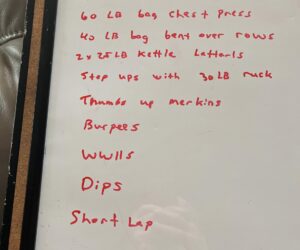 60 LB bag chest press
40 LB bag bent over rows
2 x 25 LB Kettle Latterls
Step ups with 30 LB ruck
Thumbs up merkins
Burpees
WWIIs
Dips
Short Lap